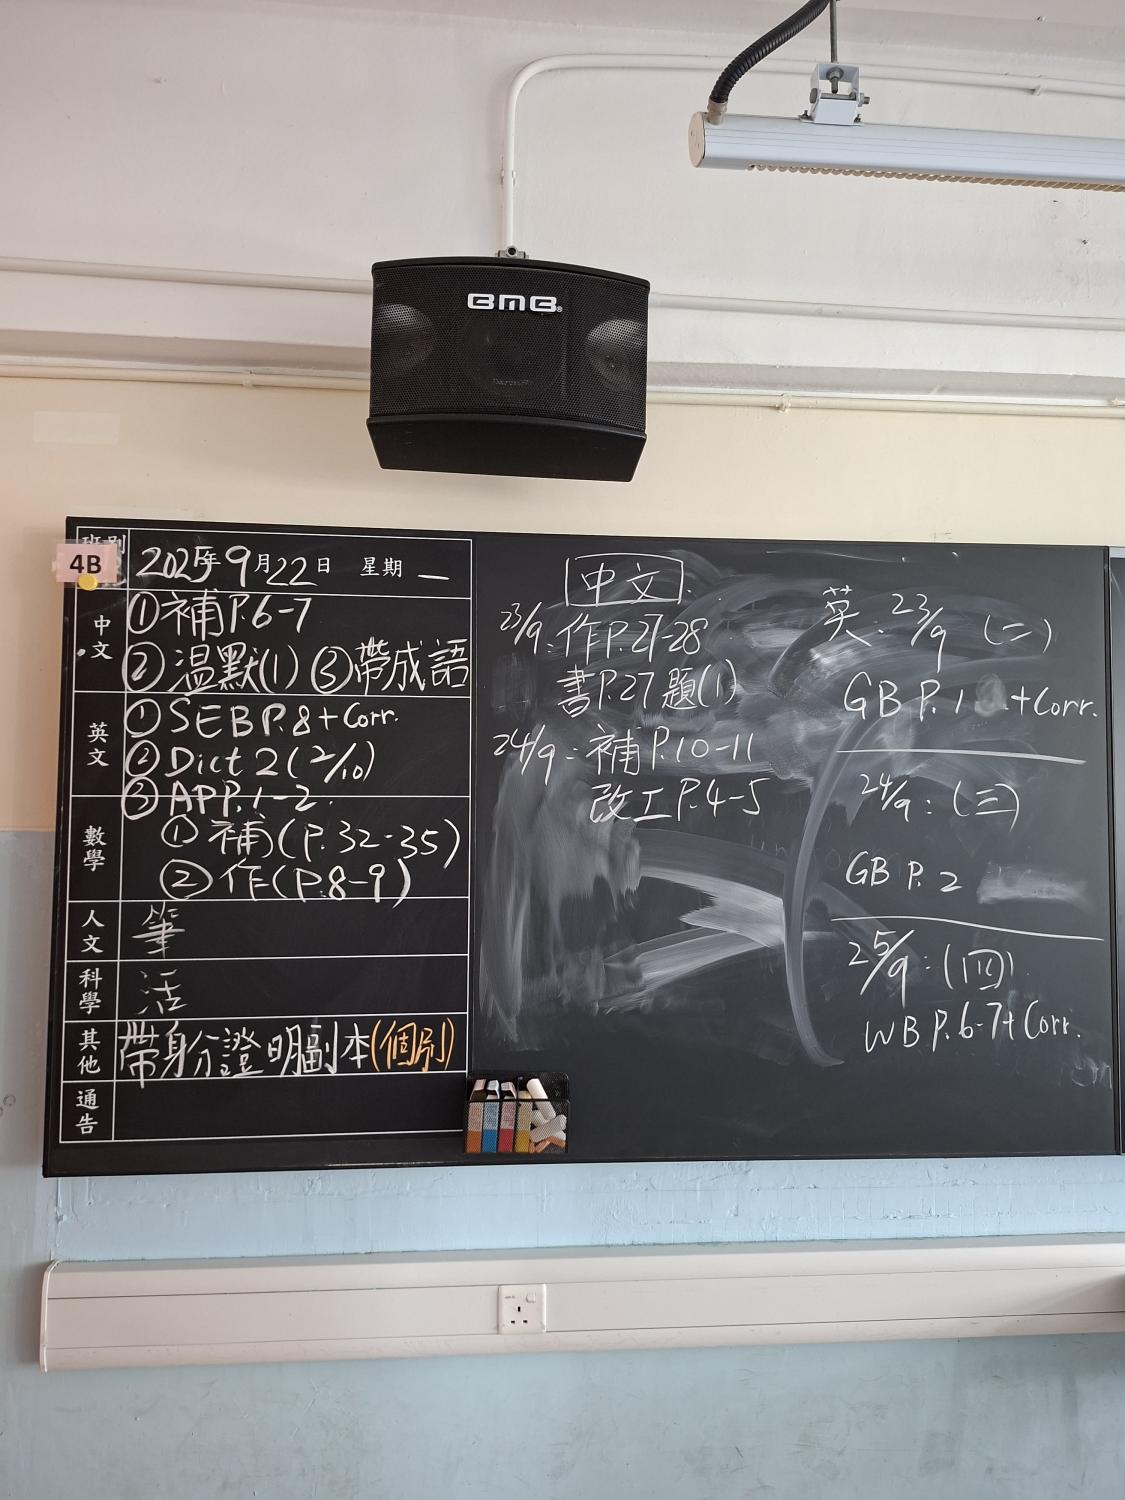 BMB
班別
4B
2025年9月22日 星期一
中文
①補P.6-7
②溫默(1) ③帶成語
英文
①SEB P.8+Corr.
②Dict 2 (2/10)
③AP P.1-2.
數學
①補(P.32-35)
②作(P.8-9)
人文
筆
科學
活
其他
帶身分證明副本(個別)
通告
中文
23/9:作P.27-28
書P.27題(1)
24/9:補P.10-11
改工P.4-5
英:23/9 (二)
GB P.1 +Corr.
24/9:(三)
GB P.2
25/9:(四)
WB P.6-7+Corr.